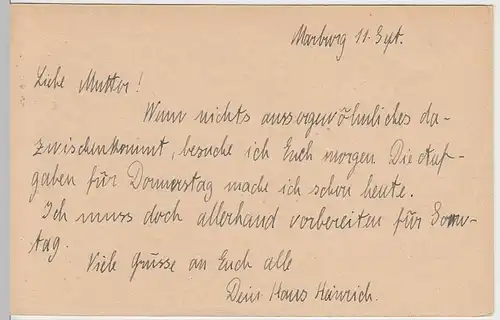 Marburg 11. Sept.
Liebe Mutter!
Wenn nichts aussergewöhnliches da-
zwischenkommt, besuche ich Euch morgen Die Auf-
gaben für Donnerstag mache ich schon heute.
Ich muss doch allerhand vorbereiten für Sonn-
tag.
Viele Grüsse an Euch alle
Dein Hans Heinrich.